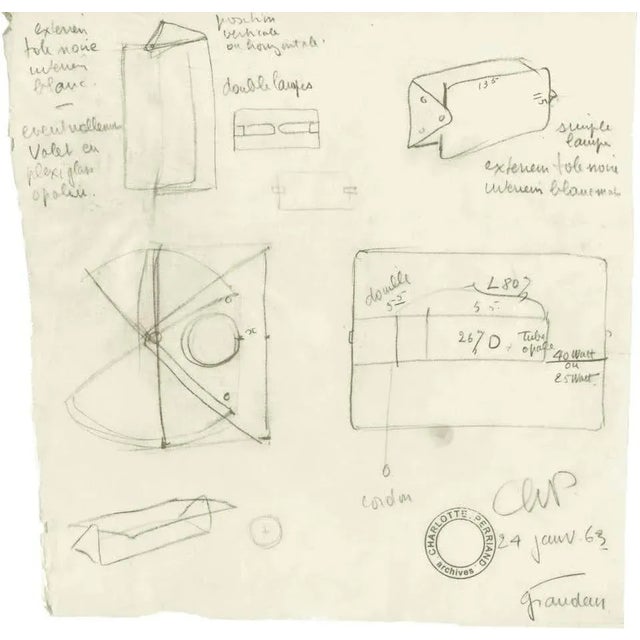 exterieur
tole noire
interieur
blanc.
position
verticale
ou horizontale.
double lampes
eventuellement
Volet en
plexiglass
opalin.
135
simple
lampe
exterieur tole noire
interieur blanc mat
double
55
L 80
55
26/D
Tube
opale
40 Watt
ou
25 Watt.
cordon
ChP.
CHARLOTTE PERRIAND
archives
24 janv. 63